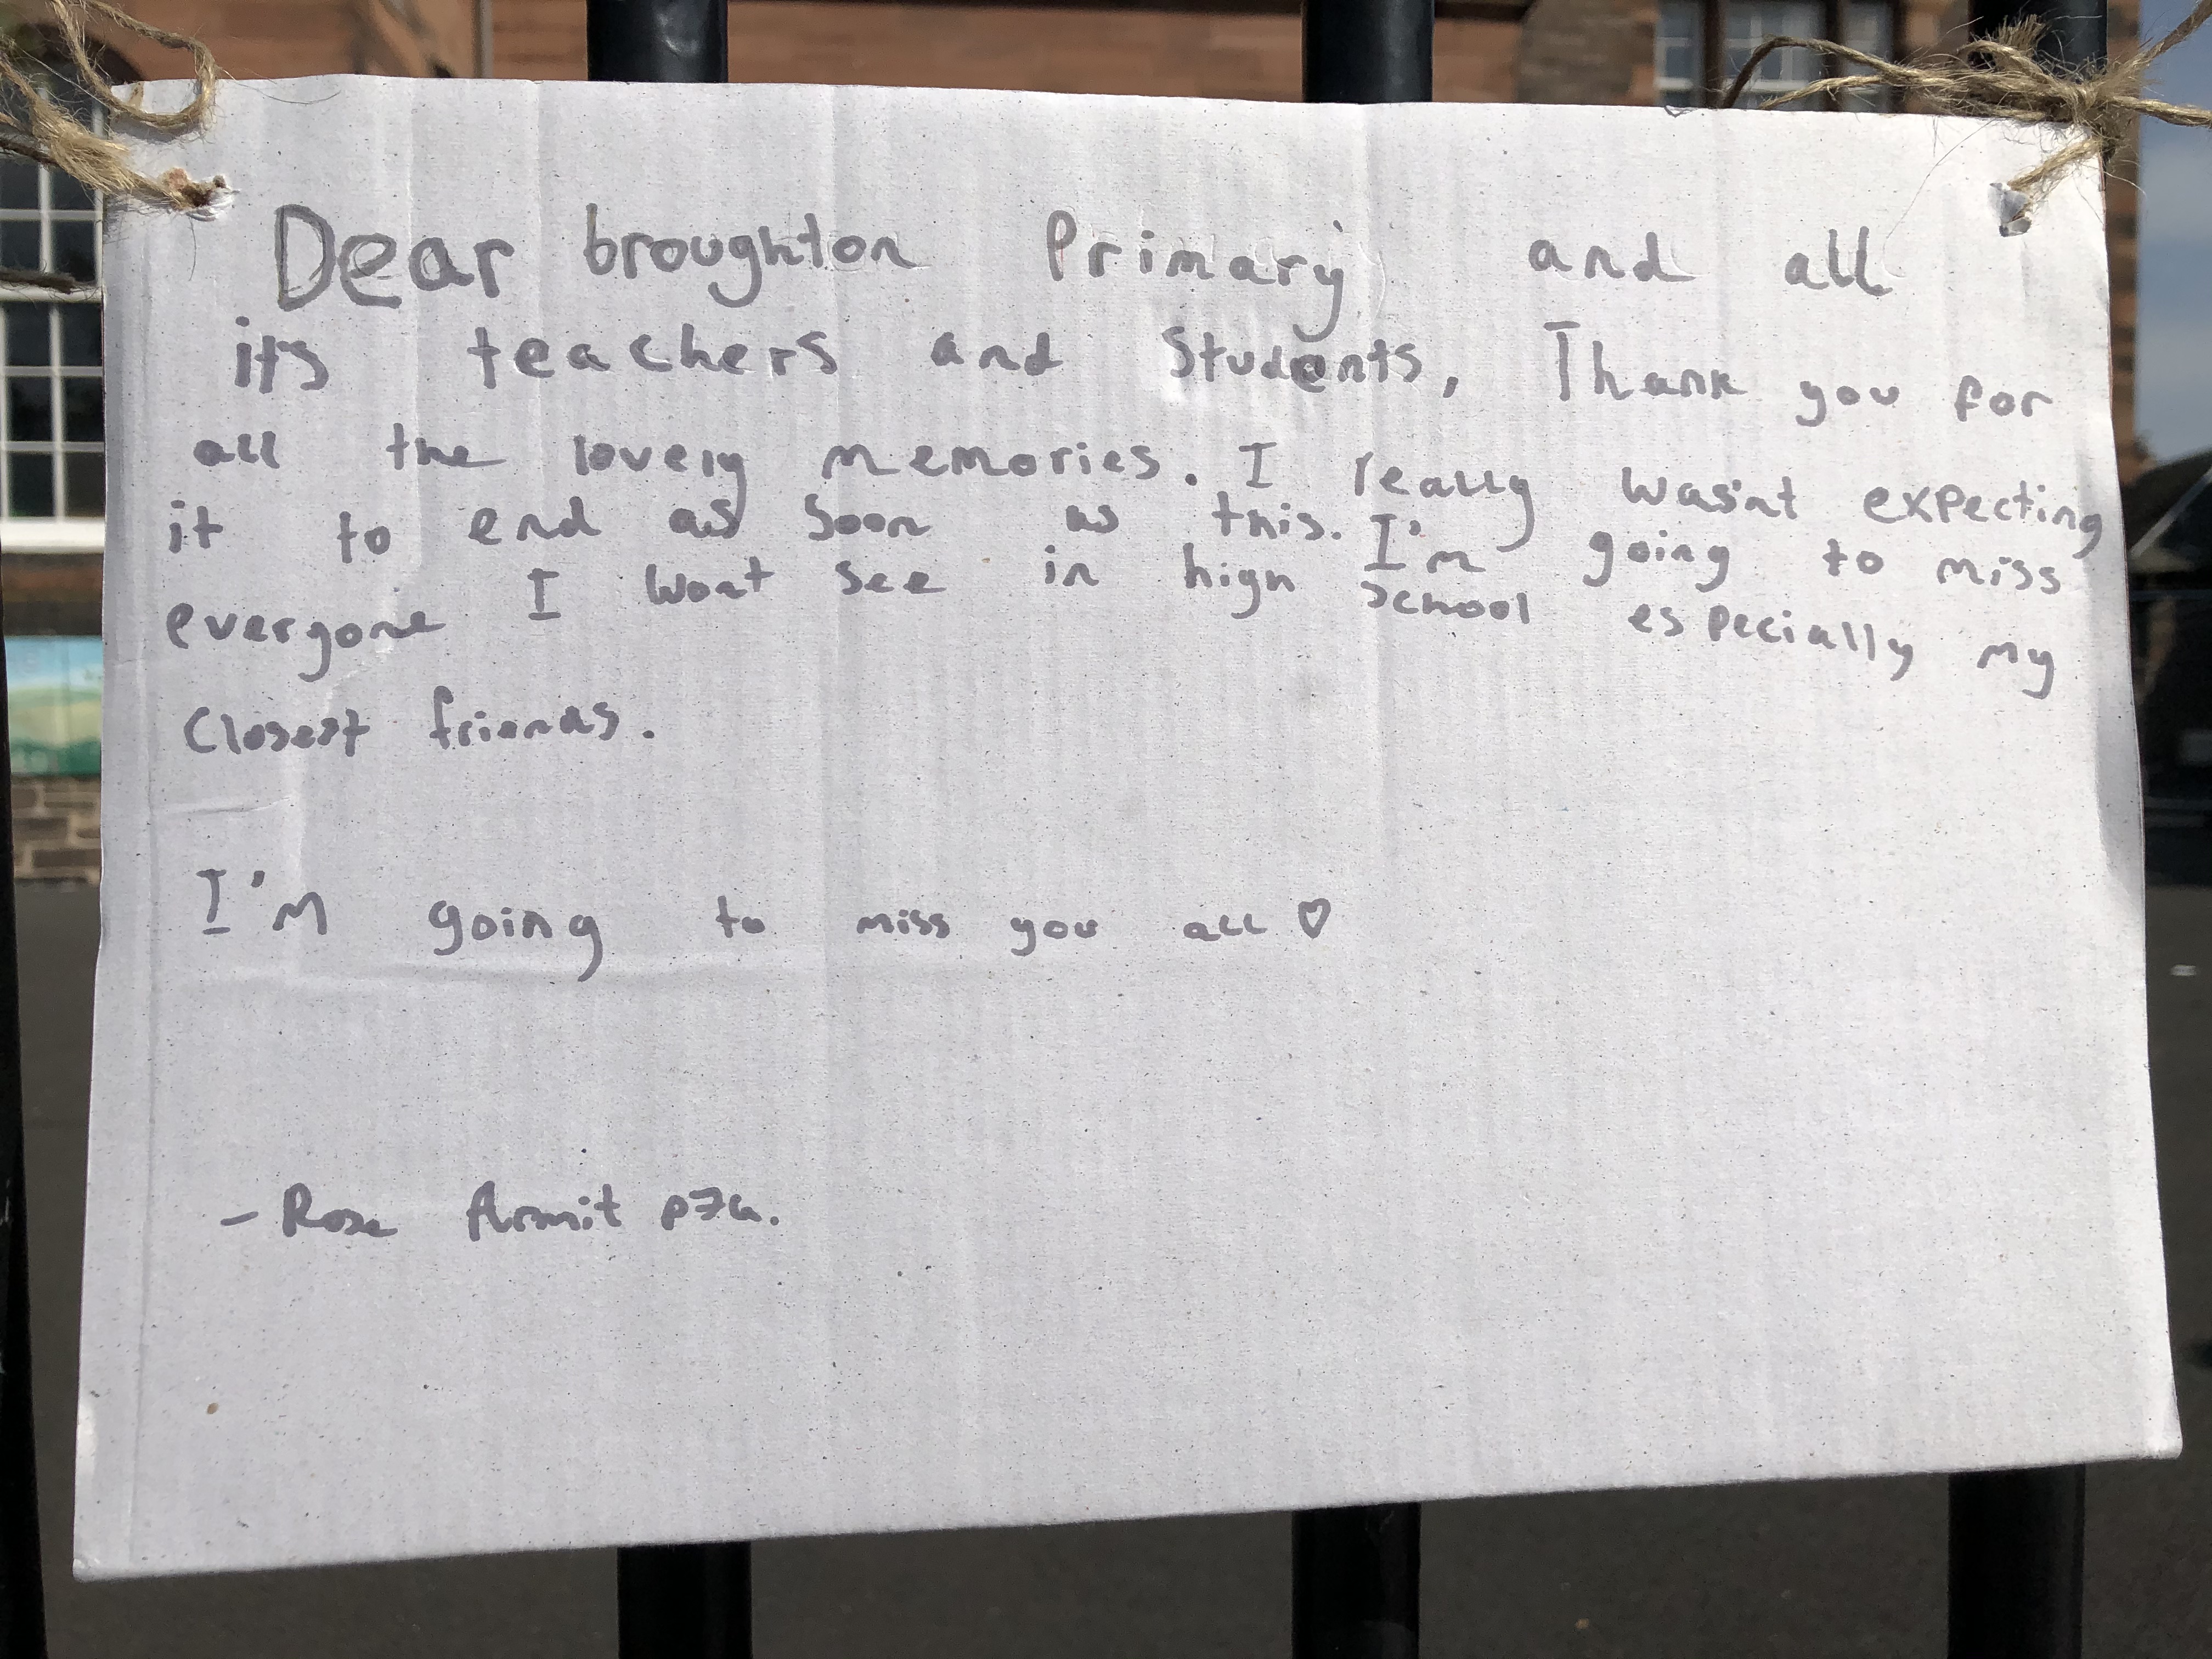 Dear broughton Primary and all
it's teachers and Students, Thank you for
all the lovely memories. I really wasn't expecting
it to end as soon as this. I'm going to miss
everyone I wont see in high school especially my
Closest friends.
I'm going to miss you all ♡
- Rose Armit p7a.